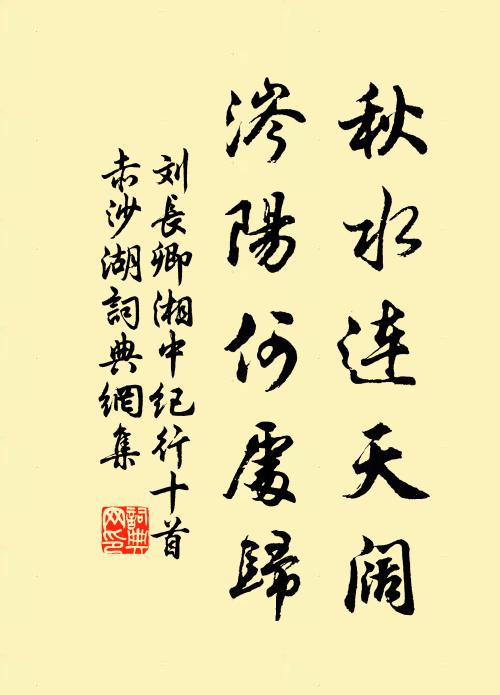 秋水連天闊
涔陽何處歸
刘長卿湘中纪行十首
赤沙湖詞典網集
詞典
网印